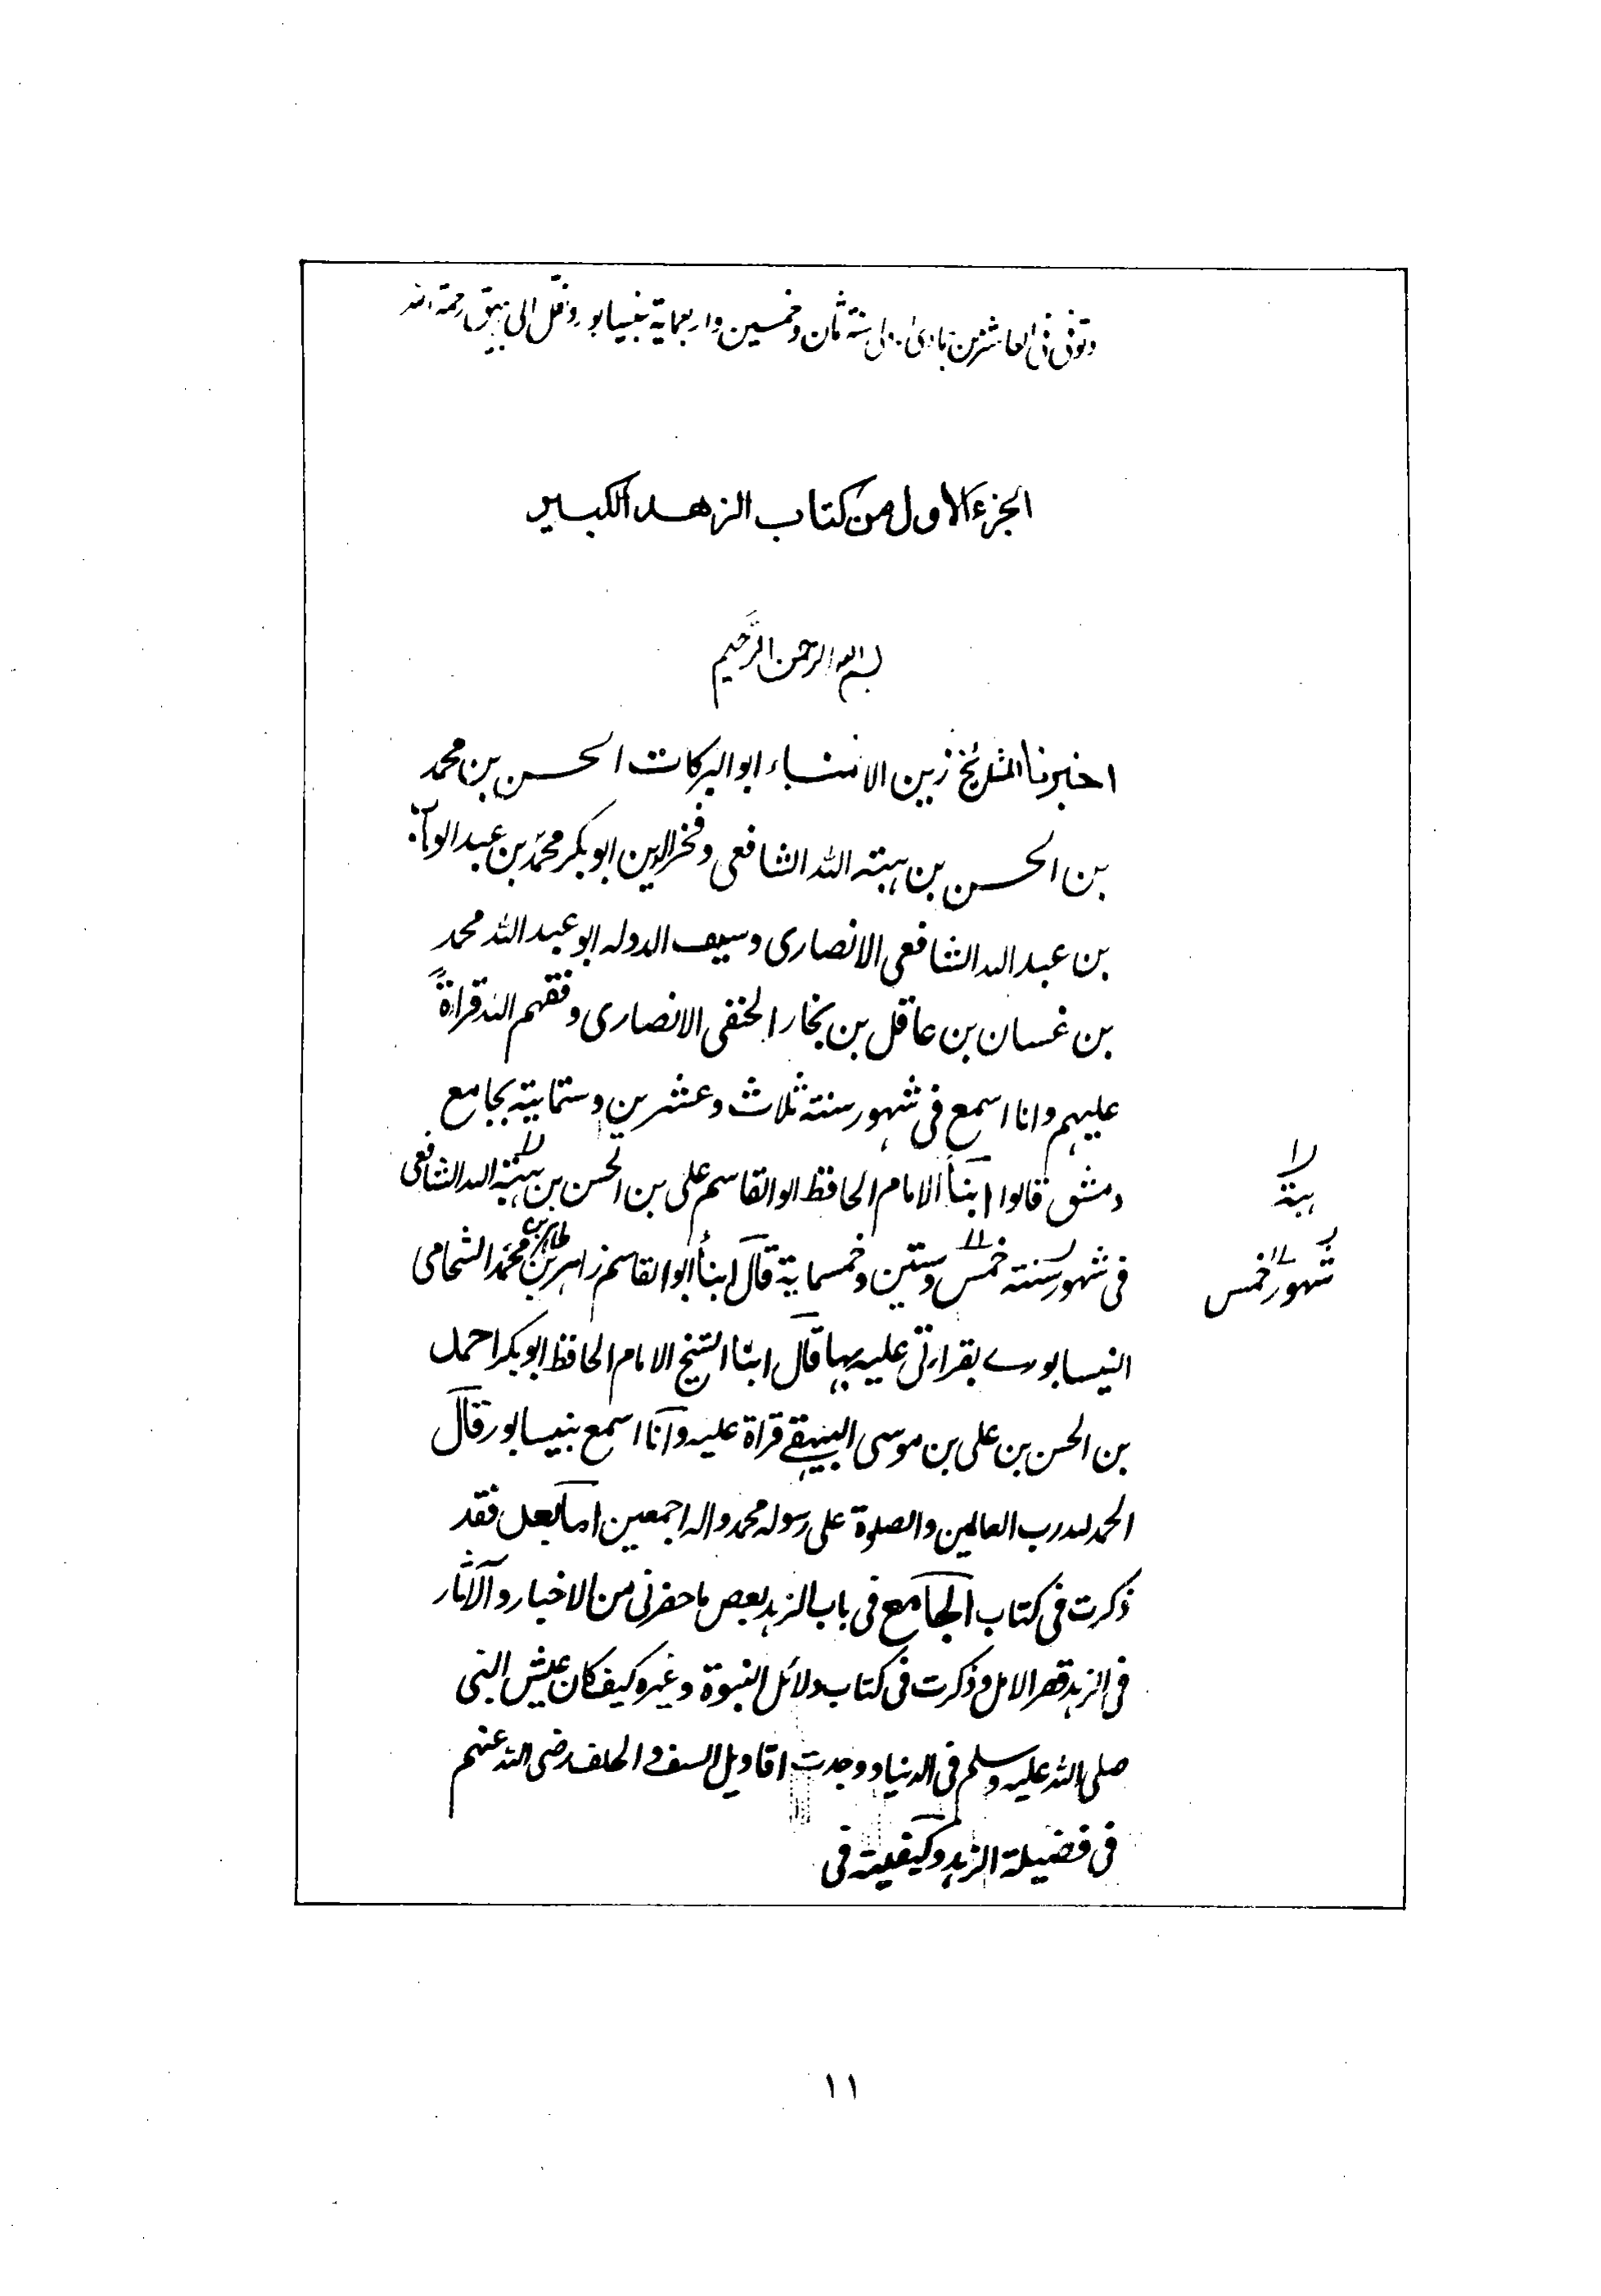 وتوفى فى العاشر من جمادى الاولى سنة ثمان وخمسين واربعماية بنيسابور ونقل الى بيهق رحمة الله
الجزء الاول من كتاب الزهد الكبير
بسم الله الرحمن الرحيم
اخبرنا المشايخ زين الامناء ابو البركات الحسن بن محمد
بن الحسن بن هبته الله الشافعى وفخر الدين ابو بكر محمد بن عبد الوهاب
بن عبد الله الشافعى الانصارى وسيف الدوله ابو عبد الله محمد
بن غسان بن عاقل بن نجار الحنفى الانصارى وفقهم الله قراةً
عليهم وانا اسمع فى شهور سنته ثلاث وعشرين وستماية بجامع
دمشق قالوا ابنأ الامام الحافظ ابو القاسم على بن الحسن بن هبته الله الشافعى
هبة
فى شهور سنته خمس وستين وخمسماية قال ابنأ ابو القاسم زاهر بن طاهر بن محمد الشحامى
شهور خمس
النيسابورے بقراءتى عليه بها قال ابنا الشيخ الامام الحافظ ابو بكر احمد
بن الحسن بن على بن موسى البيهقے قراة عليه وانا اسمع بنيسابور قال
الحمد لله رب العالمين والصلوة على رسوله محمد واله اجمعين اما بعد فقد
ذكرت فى كتاب الجامع فى باب الزهد بعص ما حضرنى من الاخبار والآثار
فى الزهد قصر الامل وذكرت فى كتاب دلائل النبوة وغيره كيف كان عيش النبى
صلى الله عليه وسلم فى الدنيا ووجدت اقاويل السف والحلف رضى الله عنهم
فى فضيلة الزهد وكيفيته فى
١١